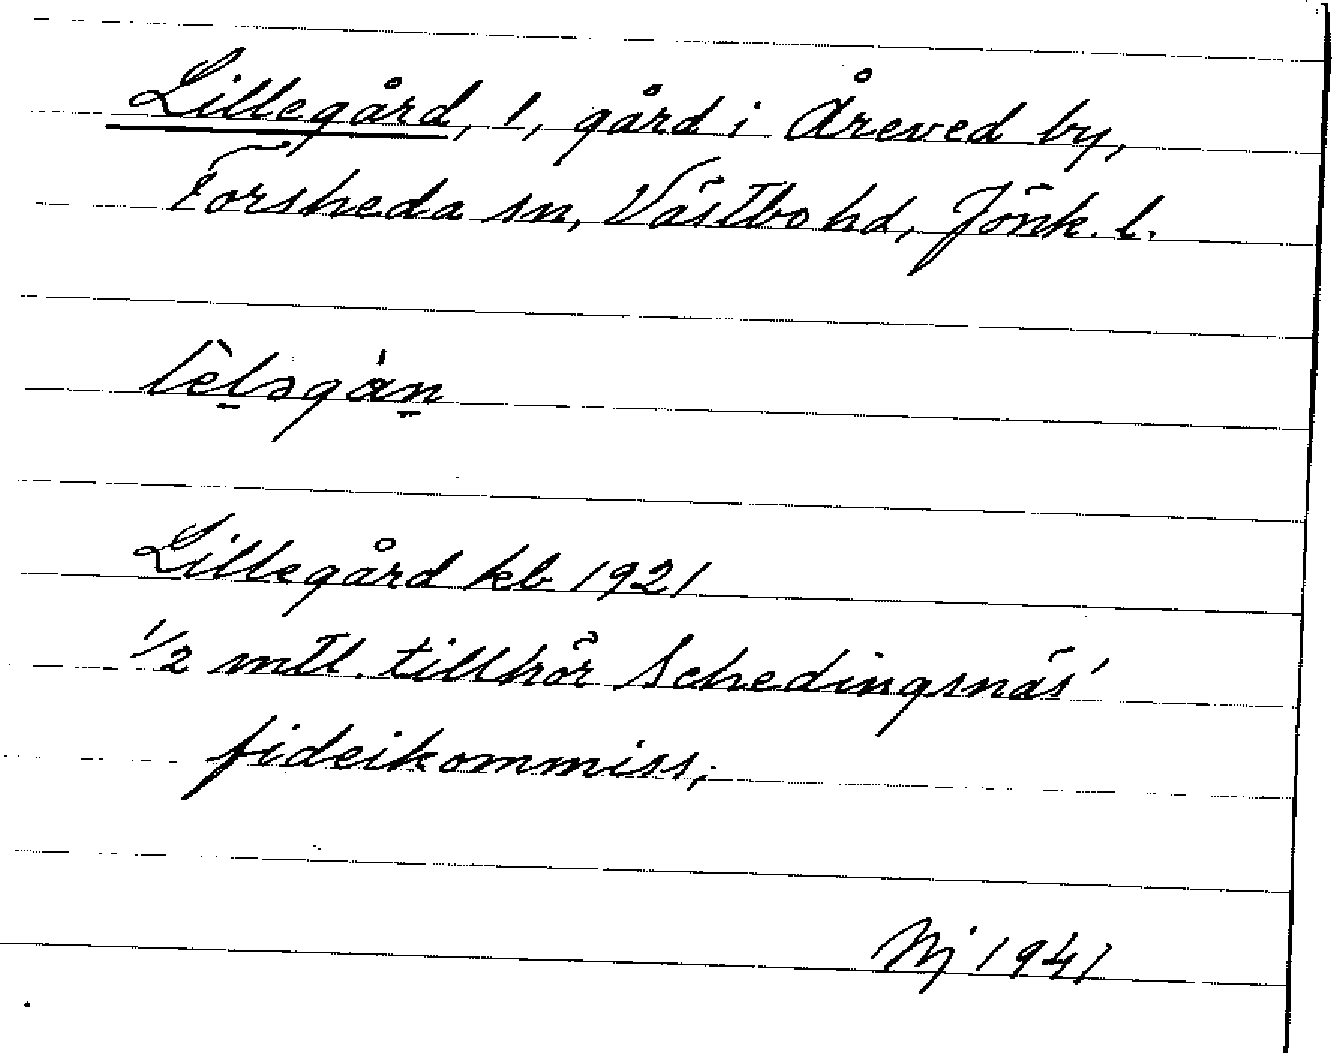 Lillegård, 1, gård i Åreved by,
Forsheda sn, Västbo hd, Jönk. l.
Lillegård kb 1921
1/2 mtl. tillhör Schedingsnäs'
fideikommiss,
1941